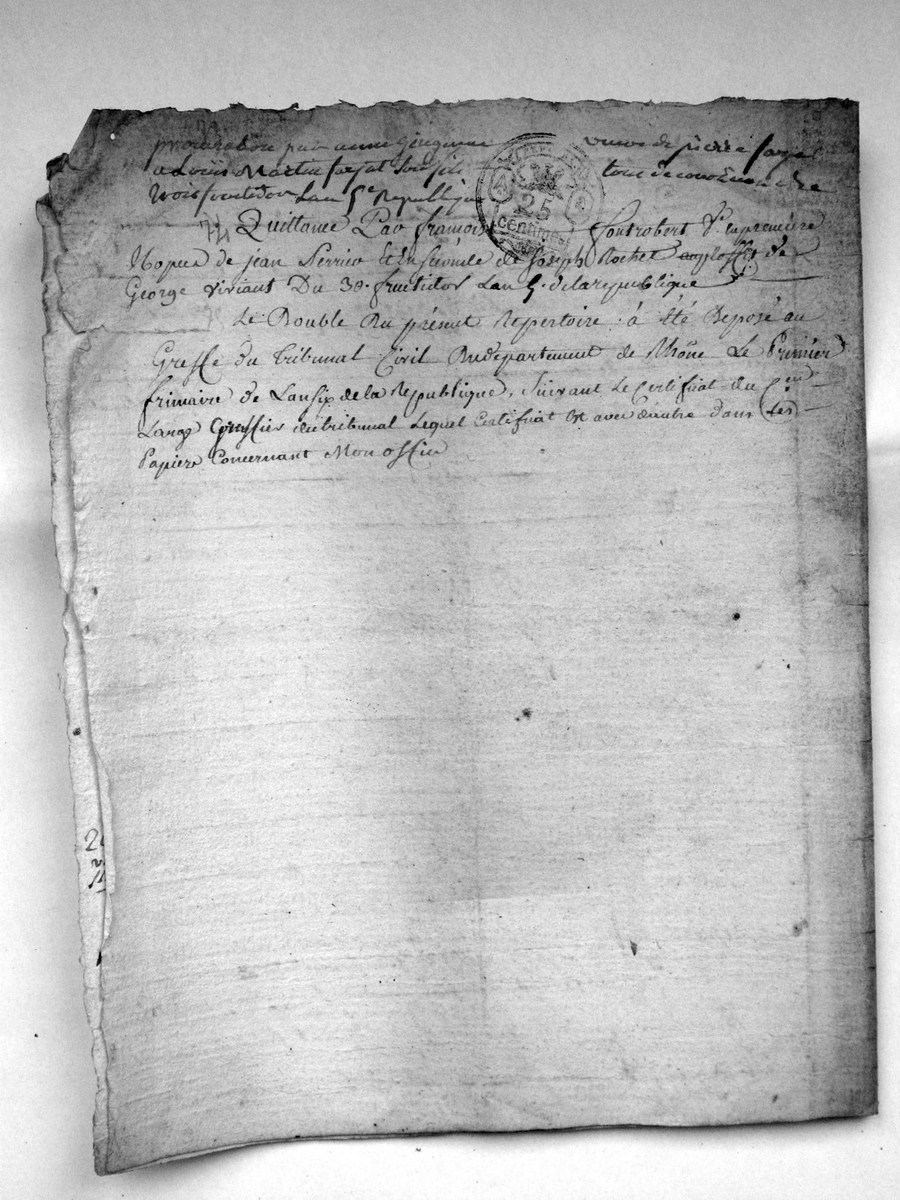 procuration par anne veuve de pierre fayet
a Louis Martin fayet son fils tous de
trois fructidor Lan 5e Republique
74 Quittance Par francois fontrobert Vf. en premiere
Nopces de jean Perrier et en seconde de Joseph Rochet de
George viviant Du 30. fructidor Lan 5. de la republique
Le Double Du présent Repertoire à été Deposé au
Greffe du tribunal Civil Du departement de Rhône Le Premier
frimaire de Lan six de la Republique, Suivant Le Certificat du Cen
Lange Greffier du tribunal Lequel Certificat Est avec dautre dans Les
Papiers Concernant Mon office
25
CENTIMES